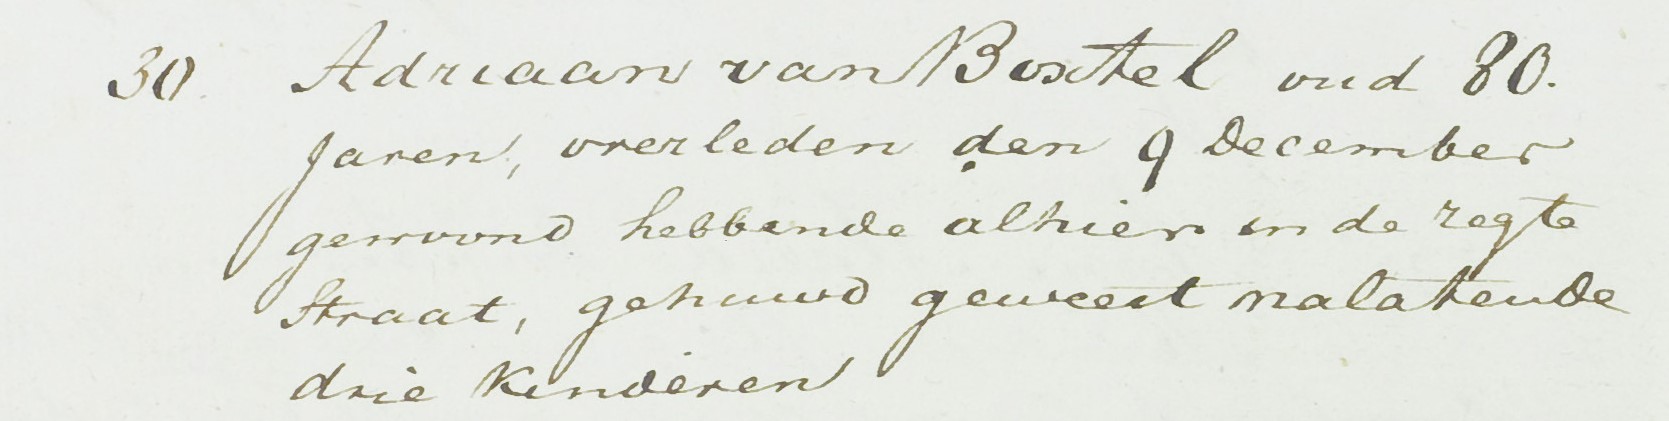 30 Adriaan van Boxtel oud 80.
Jaren, overleden den 9 December
gewoond hebbende alhier in de regte
Straat, gehuwd geweest nalatende
drie kinderen